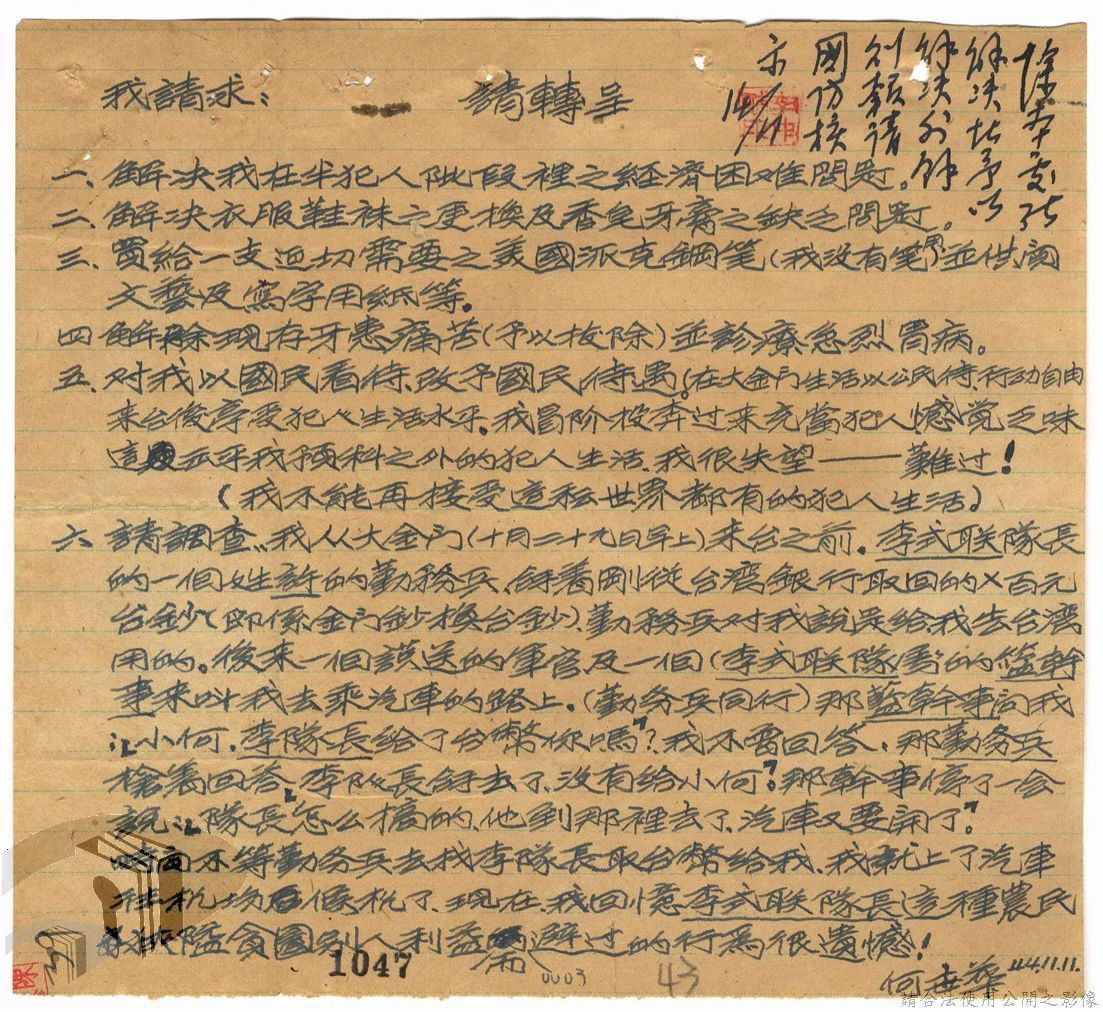 我請求： 請轉呈
除本處能
解決者予以
解決外餘
則類請
國防核
示
14/11
一、解決我在半犯人阶段裡之經濟困难問題。
二、解決衣服鞋袜之更換及香皂牙膏之缺乏問題。
三、買給一支迫切需要之美國派克鋼笔(我没有笔用)並供閱
文藝及寫字用紙等。
四 解除現存牙患痛苦(予以拔除)並診療急烈胃病。
五、对我以國民看待、改予國民待遇。(在大金门生活以公民待、行动自由
来台後享受犯人生活水平。我冒险投奔过来充當犯人憾觉乏味
這 出乎我预料之外的犯人生活、我很失望——難过！
(我不能再接受這種世界都有的犯人生活)
六 請調查、我从大金门(十月二十九日早上)来台之前。李式联隊長
的一個姓許的勤務兵、拿着剛從台湾銀行取回的乂百元
台鈔(即係金门鈔換台鈔)、勤務兵对我說是給我去台湾
用的。後来一個護送的軍官及一個(李式联隊屬)的藍幹
事来叫我去乘汽車的路上。(勤务兵同行)那藍幹事问我
"小何、李隊長給了台幣你嗎"？我不需回答、那勤务兵
搶着回答"李队長拿去了、没有給小何"。那幹事停了一会
說："隊長怎么搞的、他到那裡去了、汽車又要開了。"
時间不等勤务兵去找李隊長取台幣給我、我就上了汽車
往机场候机了、现在、我回憶李式联隊長這種農民
狡隘貪圖别人利益而避过的行為很遺憾！
何世華 44.11.11.
1047
0003
43
請合法使用公開之影像